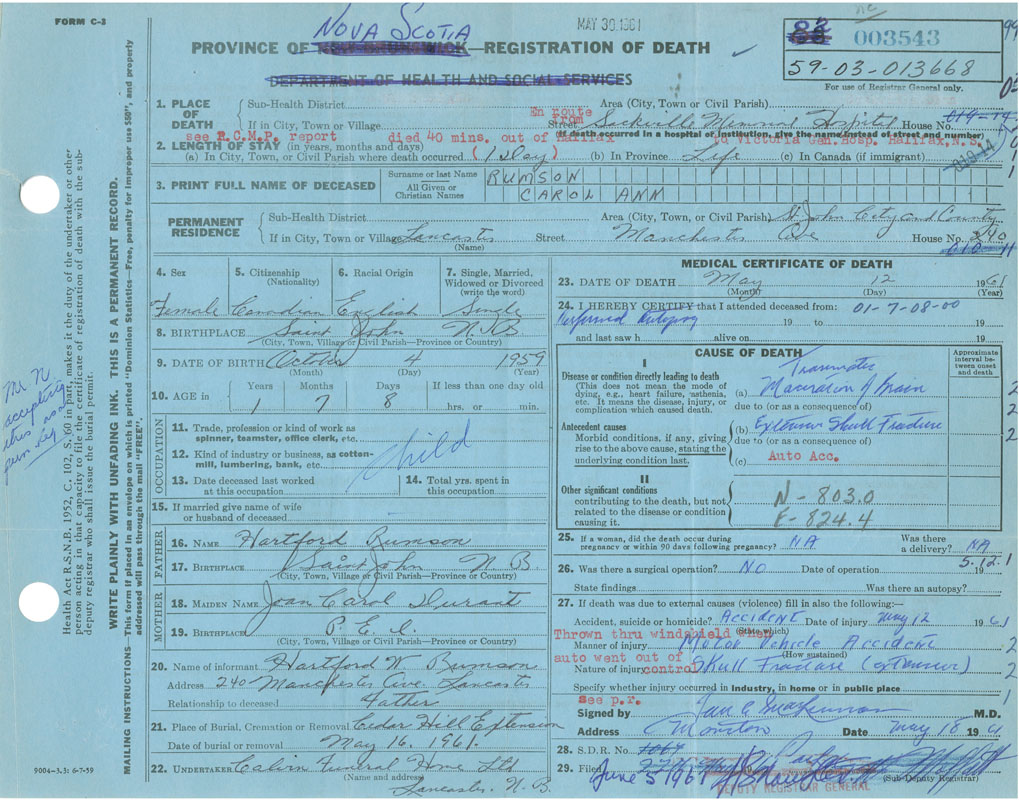 FORM C-3
NOVA SCOTIA
MAY 30 1961
PROVINCE OF NEW BRUNSWICK—REGISTRATION OF DEATH
DEPARTMENT OF HEALTH AND SOCIAL SERVICES
003543
59-03-013668
For use of Registrar General only.
1. PLACE OF DEATH
Sub-Health District
Area (City, Town or Civil Parish)
If in City, Town or Village
En route from
Street Sackville Memorial Hospital House No.
If death occurred in a hospital or institution, give the name instead of street and number)
see R.C.M.P. report died 40 mins. out of Halifax to Victoria Gen. Hosp. Halifax, N.S.
2. LENGTH OF STAY (in years, months and days)
(a) In City, Town, or Civil Parish where death occurred (1 Day) (b) In Province Life (c) In Canada (if immigrant)
019-14
3. PRINT FULL NAME OF DECEASED
Surname or last Name RUMSON
All Given or Christian Names CAROL ANN
PERMANENT RESIDENCE
Sub-Health District
Area (City, Town, or Civil Parish) St. John City and County
If in City, Town or Village Lancaster Street Manchester Ave House No. 240
(Name)
4. Sex
Female
5. Citizenship (Nationality)
Canadian
6. Racial Origin
English
7. Single, Married, Widowed or Divorced (write the word)
Single
8. BIRTHPLACE Saint John N.B.
(City, Town, Village or Civil Parish—Province or Country)
9. DATE OF BIRTH October 4 1959
(Month) (Day) (Year)
10. AGE in Years Months Days If less than one day old
1 7 8 hrs. or min.
OCCUPATION
11. Trade, profession or kind of work as spinner, teamster, office clerk, etc.
12. Kind of industry or business, as cotton-mill, lumbering, bank, etc.
Child
13. Date deceased last worked at this occupation
14. Total yrs. spent in this occupation
15. If married give name of wife or husband of deceased
FATHER
16. NAME Hartford Rumson
17. BIRTHPLACE Saint John N.B.
(City, Town, Village or Civil Parish—Province or Country)
MOTHER
18. MAIDEN NAME Joan Carol Durant
19. BIRTHPLACE P.E.I.
(City, Town, Village or Civil Parish—Province or Country)
20. Name of informant Hartford W. Rumson
Address 240 Manchester Ave. Lancaster
Relationship to deceased Father
21. Place of Burial, Cremation or Removal Cedar Hill Extension
Date of burial or removal May 16, 1961.
22. UNDERTAKER Funeral Home Ltd
(Name and address) Lancaster. N.B.
MEDICAL CERTIFICATE OF DEATH
23. DATE OF DEATH May 12 1961
(Month) (Day) (Year)
24. I HEREBY CERTIFY that I attended deceased from: 01-7-08-00
Performed Autopsy 19 to 19
and last saw h alive on 19
CAUSE OF DEATH
Approximate interval between onset and death
I
Disease or condition directly leading to death
(This does not mean the mode of dying, e.g., heart failure, asthenia, etc. It means the disease, injury, or complication which caused death.
Traumatic
(a) Maceration of Brain
due to (or as a consequence of)
Antecedent causes
Morbid conditions, if any, giving rise to the above cause, stating the underlying condition last.
(b) Extensive Skull Fracture
due to (or as a consequence of)
(c) Auto Acc.
II
Other significant conditions contributing to the death, but not related to the disease or condition causing it.
N-803.0
E-824.4
25. If a woman, did the death occur during pregnancy or within 90 days following pregnancy? NA Was there a delivery? NA
5.12.1
26. Was there a surgical operation? NO Date of operation 19
State findings Was there an autopsy?
27. If death was due to external causes (violence) fill in also the following:—
Accident, suicide or homicide? ACCIDENT Date of injury May 12 1961
(State which)
Thrown thru windshield when auto went out of control
Manner of injury Motor Vehicle Accident
(How sustained)
Nature of injury Skull Fracture (extensive)
Specify whether injury occurred in industry, in home or in public place
see p.r.
Signed by M.D.
Address Moncton Date May 18 1961
28. S.D.R. No. 1064
29. Filed June 5 1961
(Sub-Deputy Registrar)
DEPUTY REGISTRAR GENERAL
9004-3.5: 6-7-59
Health Act R.S.N.B. 1952, C. 102, S. 60 in part, makes it the duty of the undertaker or other person acting in that capacity to file the certificate of registration of death with the sub-deputy registrar who shall issue the burial permit.
WRITE PLAINLY WITH UNFADING INK. THIS IS A PERMANENT RECORD.
MAILING INSTRUCTIONS—This form if placed in an envelope on which is printed "Dominion Statistics—Free, penalty for improper use $50", and properly addressed will pass through the mail "FREE".
accepting this as